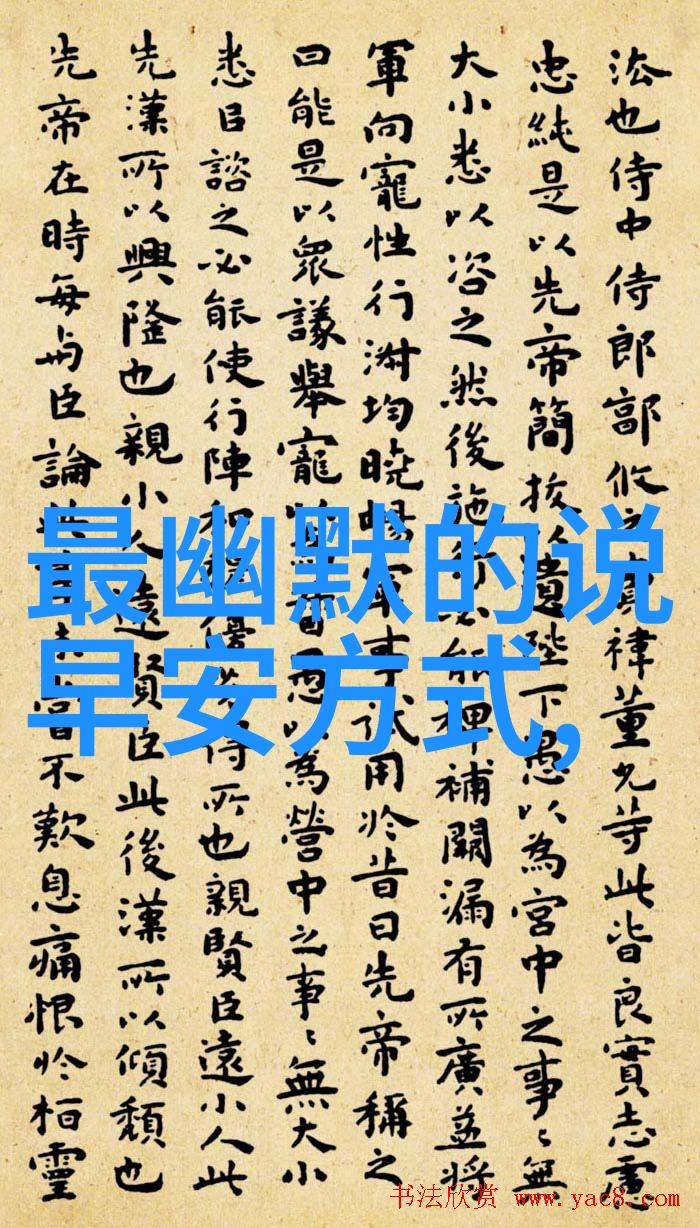 法也侍中侍郎郭攸之費禕董允等此皆良實志慮
忠純是以先帝簡拔以遺陛下愚以為宮中之事〻無
大小悉以咨之然後施行必能裨補闕漏有所廣益將
軍向寵性行淑均曉暢軍事試用於昔日先帝稱之
曰能是以衆議舉寵以為督愚以為營中之事〻無大小
悉以諮之必能使行陣和穆優劣得所也親賢臣遠小人此
先漢所以興隆也親小人遠賢臣此後漢所以傾頹也
先帝在時每與臣論此事未嘗不歎息痛恨於桓靈
最幽默的说
早安方式,
书法欣赏 www.yac8.com